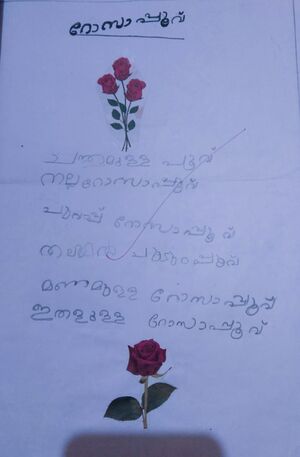 റോസാപ്പൂവ്
ചന്തമുള്ള പൂവ്
നല്ലറോസാപ്പൂവ്
ചുവപ്പ് റോസാപ്പൂവ്
ചൂടുംപൂവ്
മണമുള്ള റോസാപ്പൂവ്
ഇതളുള്ള റോസാപ്പൂവ്